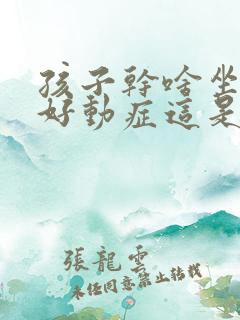 孩子幹啥坐
好動症這是
張龍雲
未经同意禁止转载